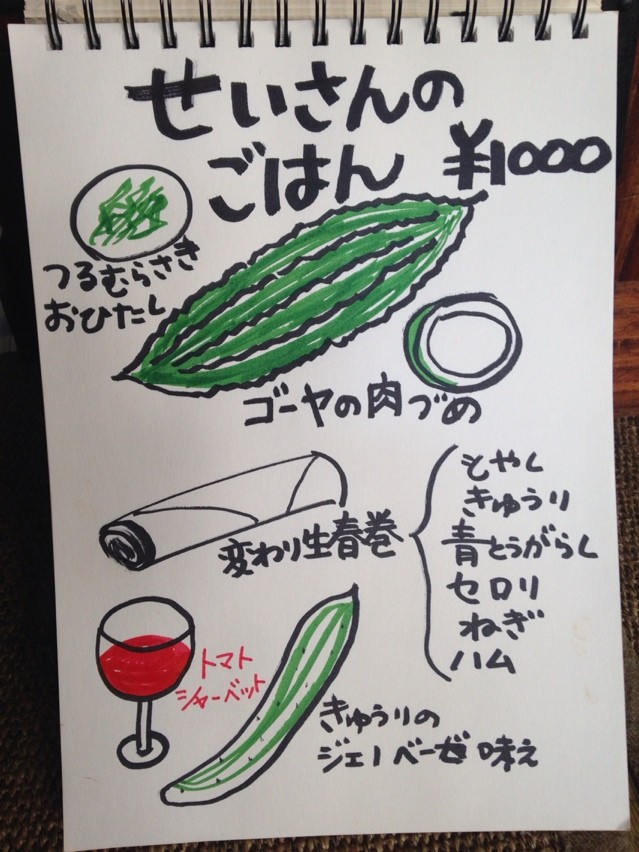 せいさんの
ごはん ¥1000
つるむらさき
おひたし
ゴーヤの肉づめ
変わり生春巻
もやし
きゅうり
青とうがらし
セロリ
ねぎ
ハム
トマト
シャーベット
きゅうりの
ジェノベーゼ味え